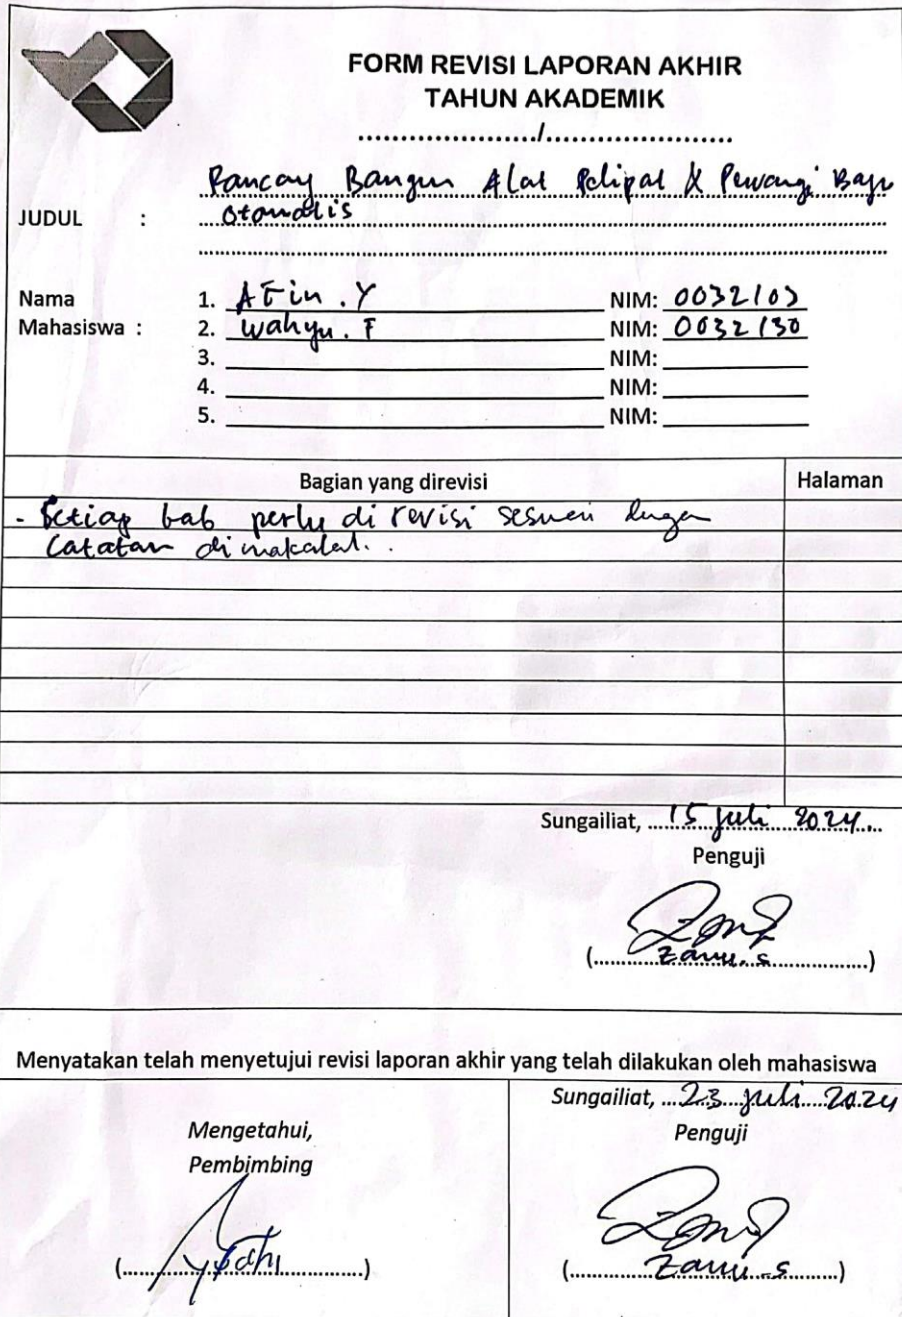 FORM REVISI LAPORAN AKHIR
TAHUN AKADEMIK
..................../......................
Rancang Bangun Alat Pelipat & Pewangi Baju
JUDUL : Otomatis
Nama Mahasiswa :
1. Afin . Y NIM: 0032103
2. Wahyu . F NIM: 0032130
3. NIM:
4. NIM:
5. NIM:
Bagian yang direvisi Halaman
- Setiap bab perlu di revisi sesuai dengan
Catatan di makalah.
Sungailiat, 15 Juli 2024.
Penguji
(Zanu. S)
Menyatakan telah menyetujui revisi laporan akhir yang telah dilakukan oleh mahasiswa
Sungailiat, 23 Juli 2024
Mengetahui,
Pembimbing
Penguji
(Zanu. S)